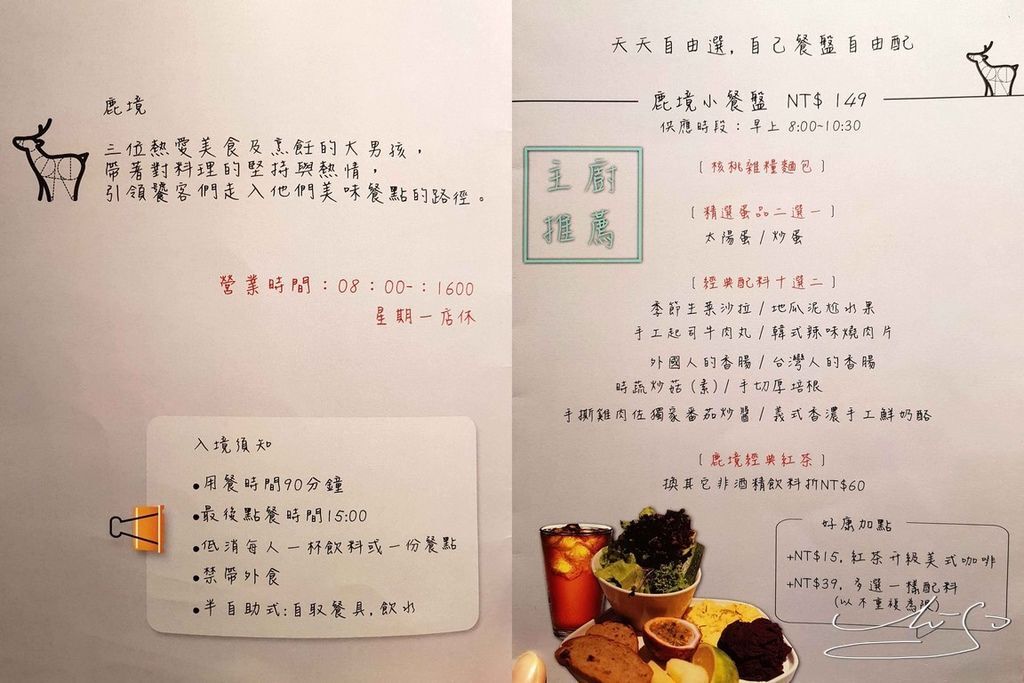 鹿境
三位熱愛美食及烹飪的大男孩，
帶著對料理的堅持與熱情，
引領饕客們走入他們美味餐點的路徑。
營業時間：08：00-：1600
星期一店休
入境須知
●用餐時間90分鐘
●最後點餐時間15:00
●低消每人一杯飲料或一份餐點
●禁帶外食
●半自助式:自取餐具,飲水
天天自由選,自己餐盤自由配
鹿境小餐盤 NT$ 149
供應時段：早上 8:00~10:30
主廚
推薦
〔核桃雜糧麵包〕
〔精選蛋品二選一〕
太陽蛋/炒蛋
〔經典配料十選二〕
季節生菜沙拉/地瓜泥尬水果
手工起司牛肉丸/韓式辣味燒肉片
外國人的香腸/台灣人的香腸
時蔬炒菇(素)/手切厚培根
手撕雞肉佐獨家番茄炒醬/義式香濃手工鮮奶酪
〔鹿境經典紅茶〕
換其它非酒精飲料折NT$60
好康加點
+NT$15,紅茶升級美式咖啡
+NT$39,多選一樣配料
(以不重複為限)